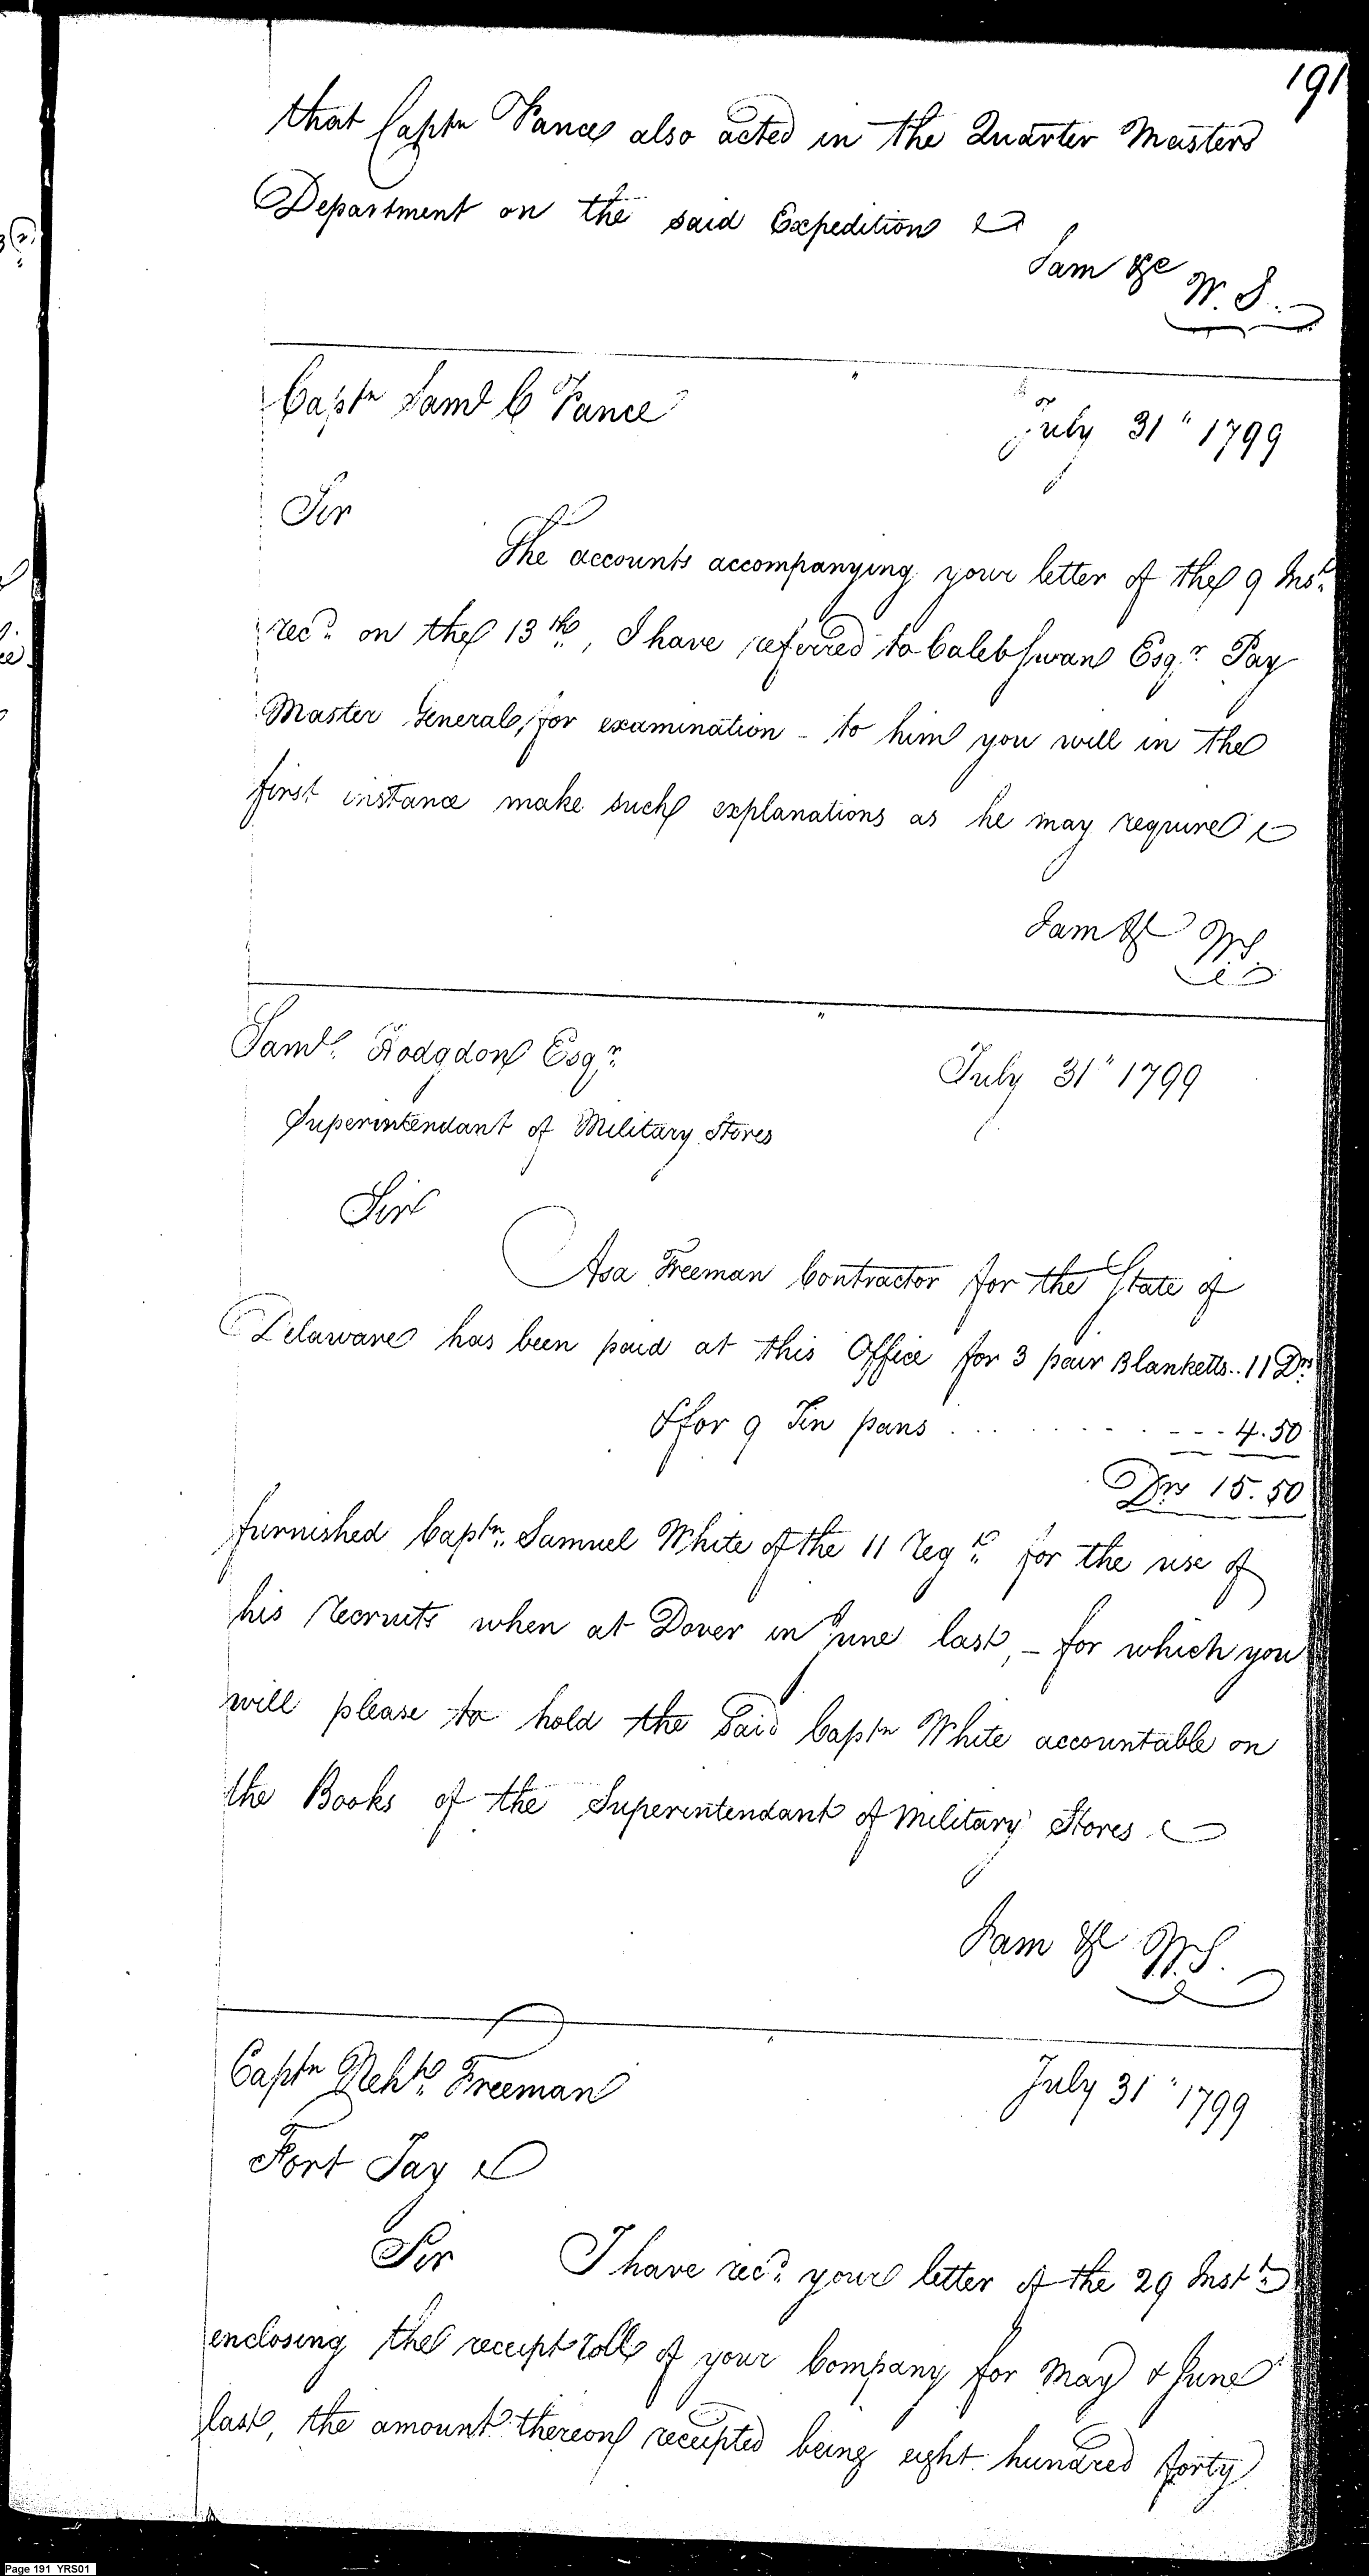 191
that Captn Vance also acted in the Quarter Masters
Department on the said Expedition
I am &c
W. S.
Captn Saml C Vance
July 31" 1799
Sir
The accounts accompanying your letter of the 9 Inst.
recd. on the 13th, I have referred to Caleb Swan Esqr Pay
Master General, for examination - to him you will in the
first instance make such explanations as he may require
I am &c
WS.
Saml. Hodgdon Esqr
July 31" 1799
Superintendant of Military Stores
Sir
Asa Freeman Contractor for the State of
Delaware has been paid at this Office for 3 pair Blanketts.. 11 Drs
& for 9 Tin pans . . . . . . . - - - 4.50
Drs 15.50
furnished Captn. Samuel White of the 11 Regt. for the use of
his recruits when at Dover in June last, - for which you
will please to hold the Said Captn White accountable on
the Books of the Superintendant of Military Stores
I am &c W.S.
Captn Nehh. Freeman
July 31" 1799
Fort Jay
Sir I have recd. your letter of the 29 Inst.
enclosing the receipt roll of your Company for May & June
last, the amount thereon receipted being eight hundred forty
Page 191 YRS01